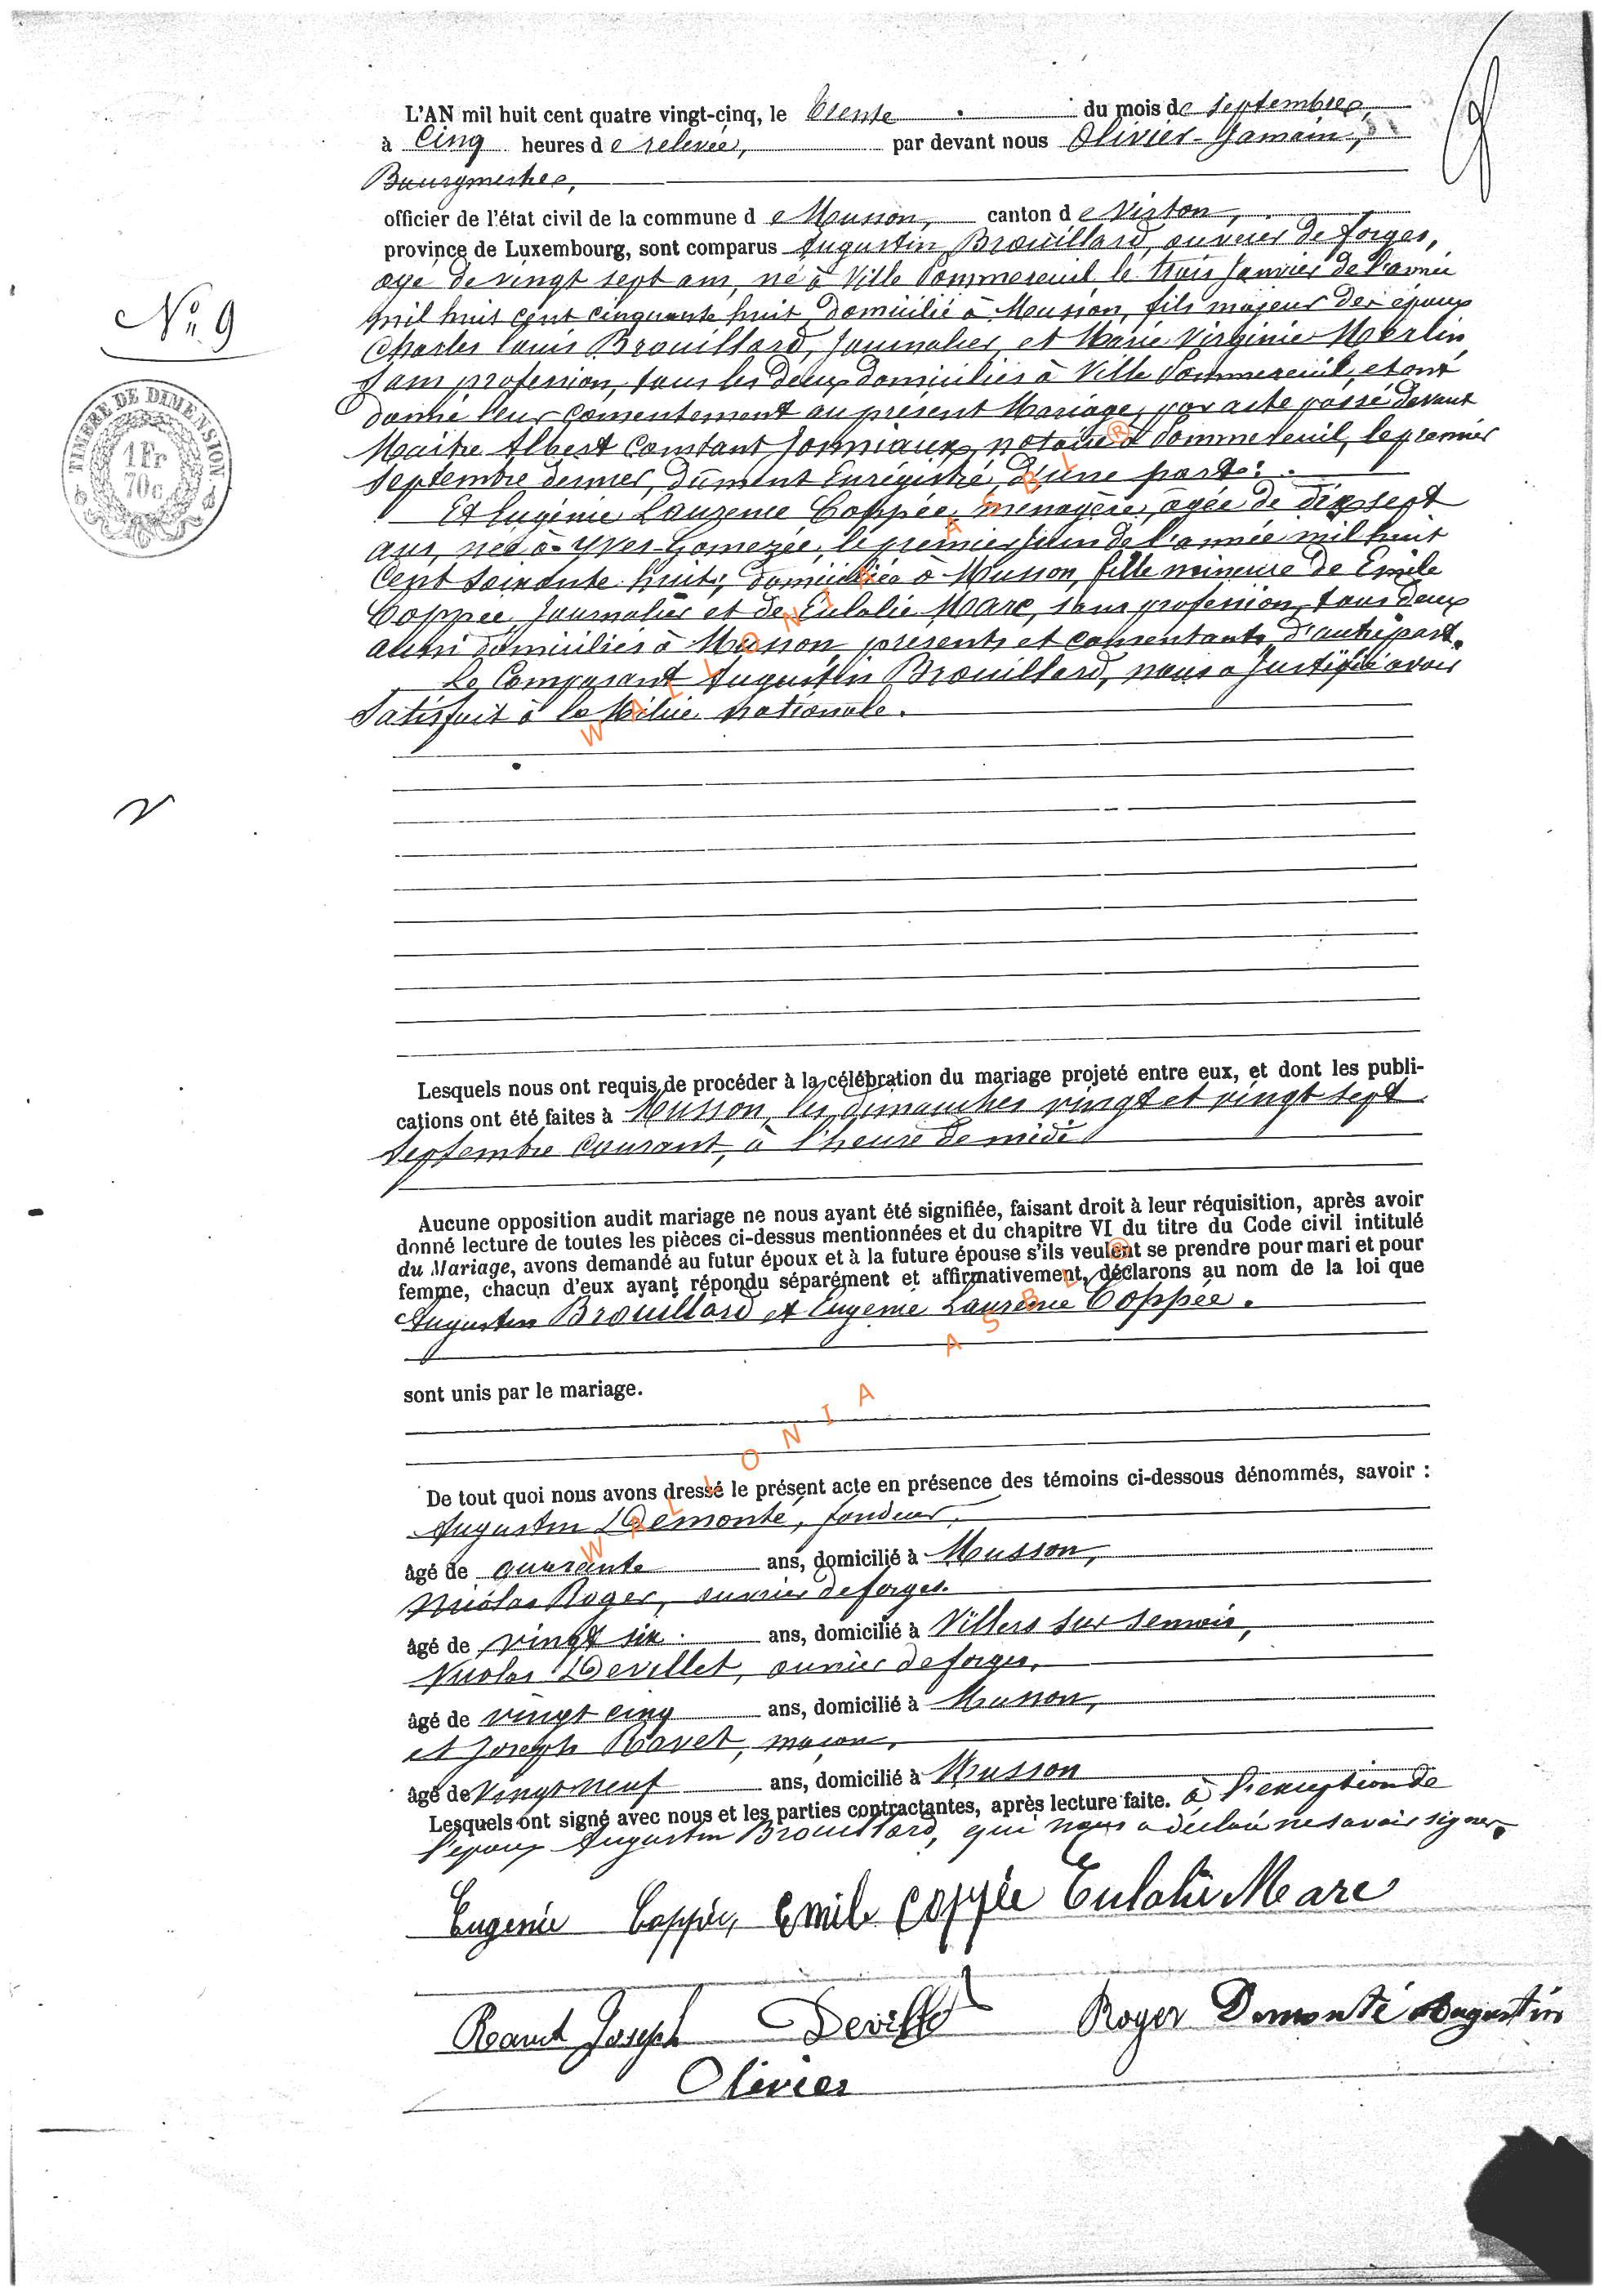 L'AN mil huit cent quatre vingt-cinq, le trente du mois de septembre,
à cinq heures de relevée, par devant nous Olivier-Gamain,
Bourgmestre,
officier de l'état civil de la commune de Musson, canton de Virton,
province de Luxembourg, sont comparus Augustin Brouillard, ouvrier de forges,
agé de vingt sept ans, né à Ville Pommeroeuil le trois Janvier de l'année
mil huit cent cinquante huit, domicilié à Musson, fils majeur des époux
Charles Louis Brouillard, Journalier, et Marie Virginie Merlin
sans profession, tous les deux domiciliés à Ville Pommeroeuil, et ont
donné leur consentement au présent Mariage, par acte passé devant
Maître Albert Constant notaire à Pommeroeuil, le premier
Septembre dernier, dûment Enrégistré, d'une part.
Et Eugénie Laurence Coppée, ménagère, agée de dix sept
ans, née à Yves-Gomezée, le premier Juin de l'année mil huit
cent soixante huit, domiciliée à Musson, fille mineure de Emile
Coppée, Journalier et de Eulalie Marc, sans profession, tous deux
aussi domiciliés à Musson, présents et consentants, d'autre part.
Le Comparant Augustin Brouillard, nous a Justifié avoir
Satisfait à la Milice nationale.
N° 9
TIMBRE DE DIMENSION
1 Fr
70c
Lesquels nous ont requis de procéder à la célébration du mariage projeté entre eux, et dont les publi-
cations ont été faites à Musson, les dimanches vingt et vingt sept
septembre courant, à l'heure de midi
Aucune opposition audit mariage ne nous ayant été signifiée, faisant droit à leur réquisition, après avoir
donné lecture de toutes les pièces ci-dessus mentionnées et du chapitre VI du titre du Code civil intitulé
du Mariage, avons demandé au futur époux et à la future épouse s'ils veulent se prendre pour mari et pour
femme, chacun d'eux ayant répondu séparément et affirmativement, déclarons au nom de la loi que
Augustin Brouillard et Eugenie Laurence Coppée.
sont unis par le mariage.
De tout quoi nous avons dressé le présent acte en présence des témoins ci-dessous dénommés, savoir :
Augustin Demonté, fondeur,
âgé de quarante ans, domicilié à Musson,
Nicolas Roger, ouvrier de forges.
âgé de vingt six ans, domicilié à Villers sur semois,
Nicolas Devillet, ouvrier de forges,
âgé de vingt cinq ans, domicilié à Musson,
et Joseph Ravet, maçon,
âgé de vingt neuf ans, domicilié à Musson
Lesquels ont signé avec nous et les parties contractantes, après lecture faite. à l'exception de
l'époux Augustin Brouillard, qui nous a déclaré ne savoir signer.
Eugenie Coppée, Emile Coppée Eulalie Marc
Joseph Devillet Roger Demonté Augustin
Olivier
WALLONIA ASBL ®
WALLONIA ASBL ®